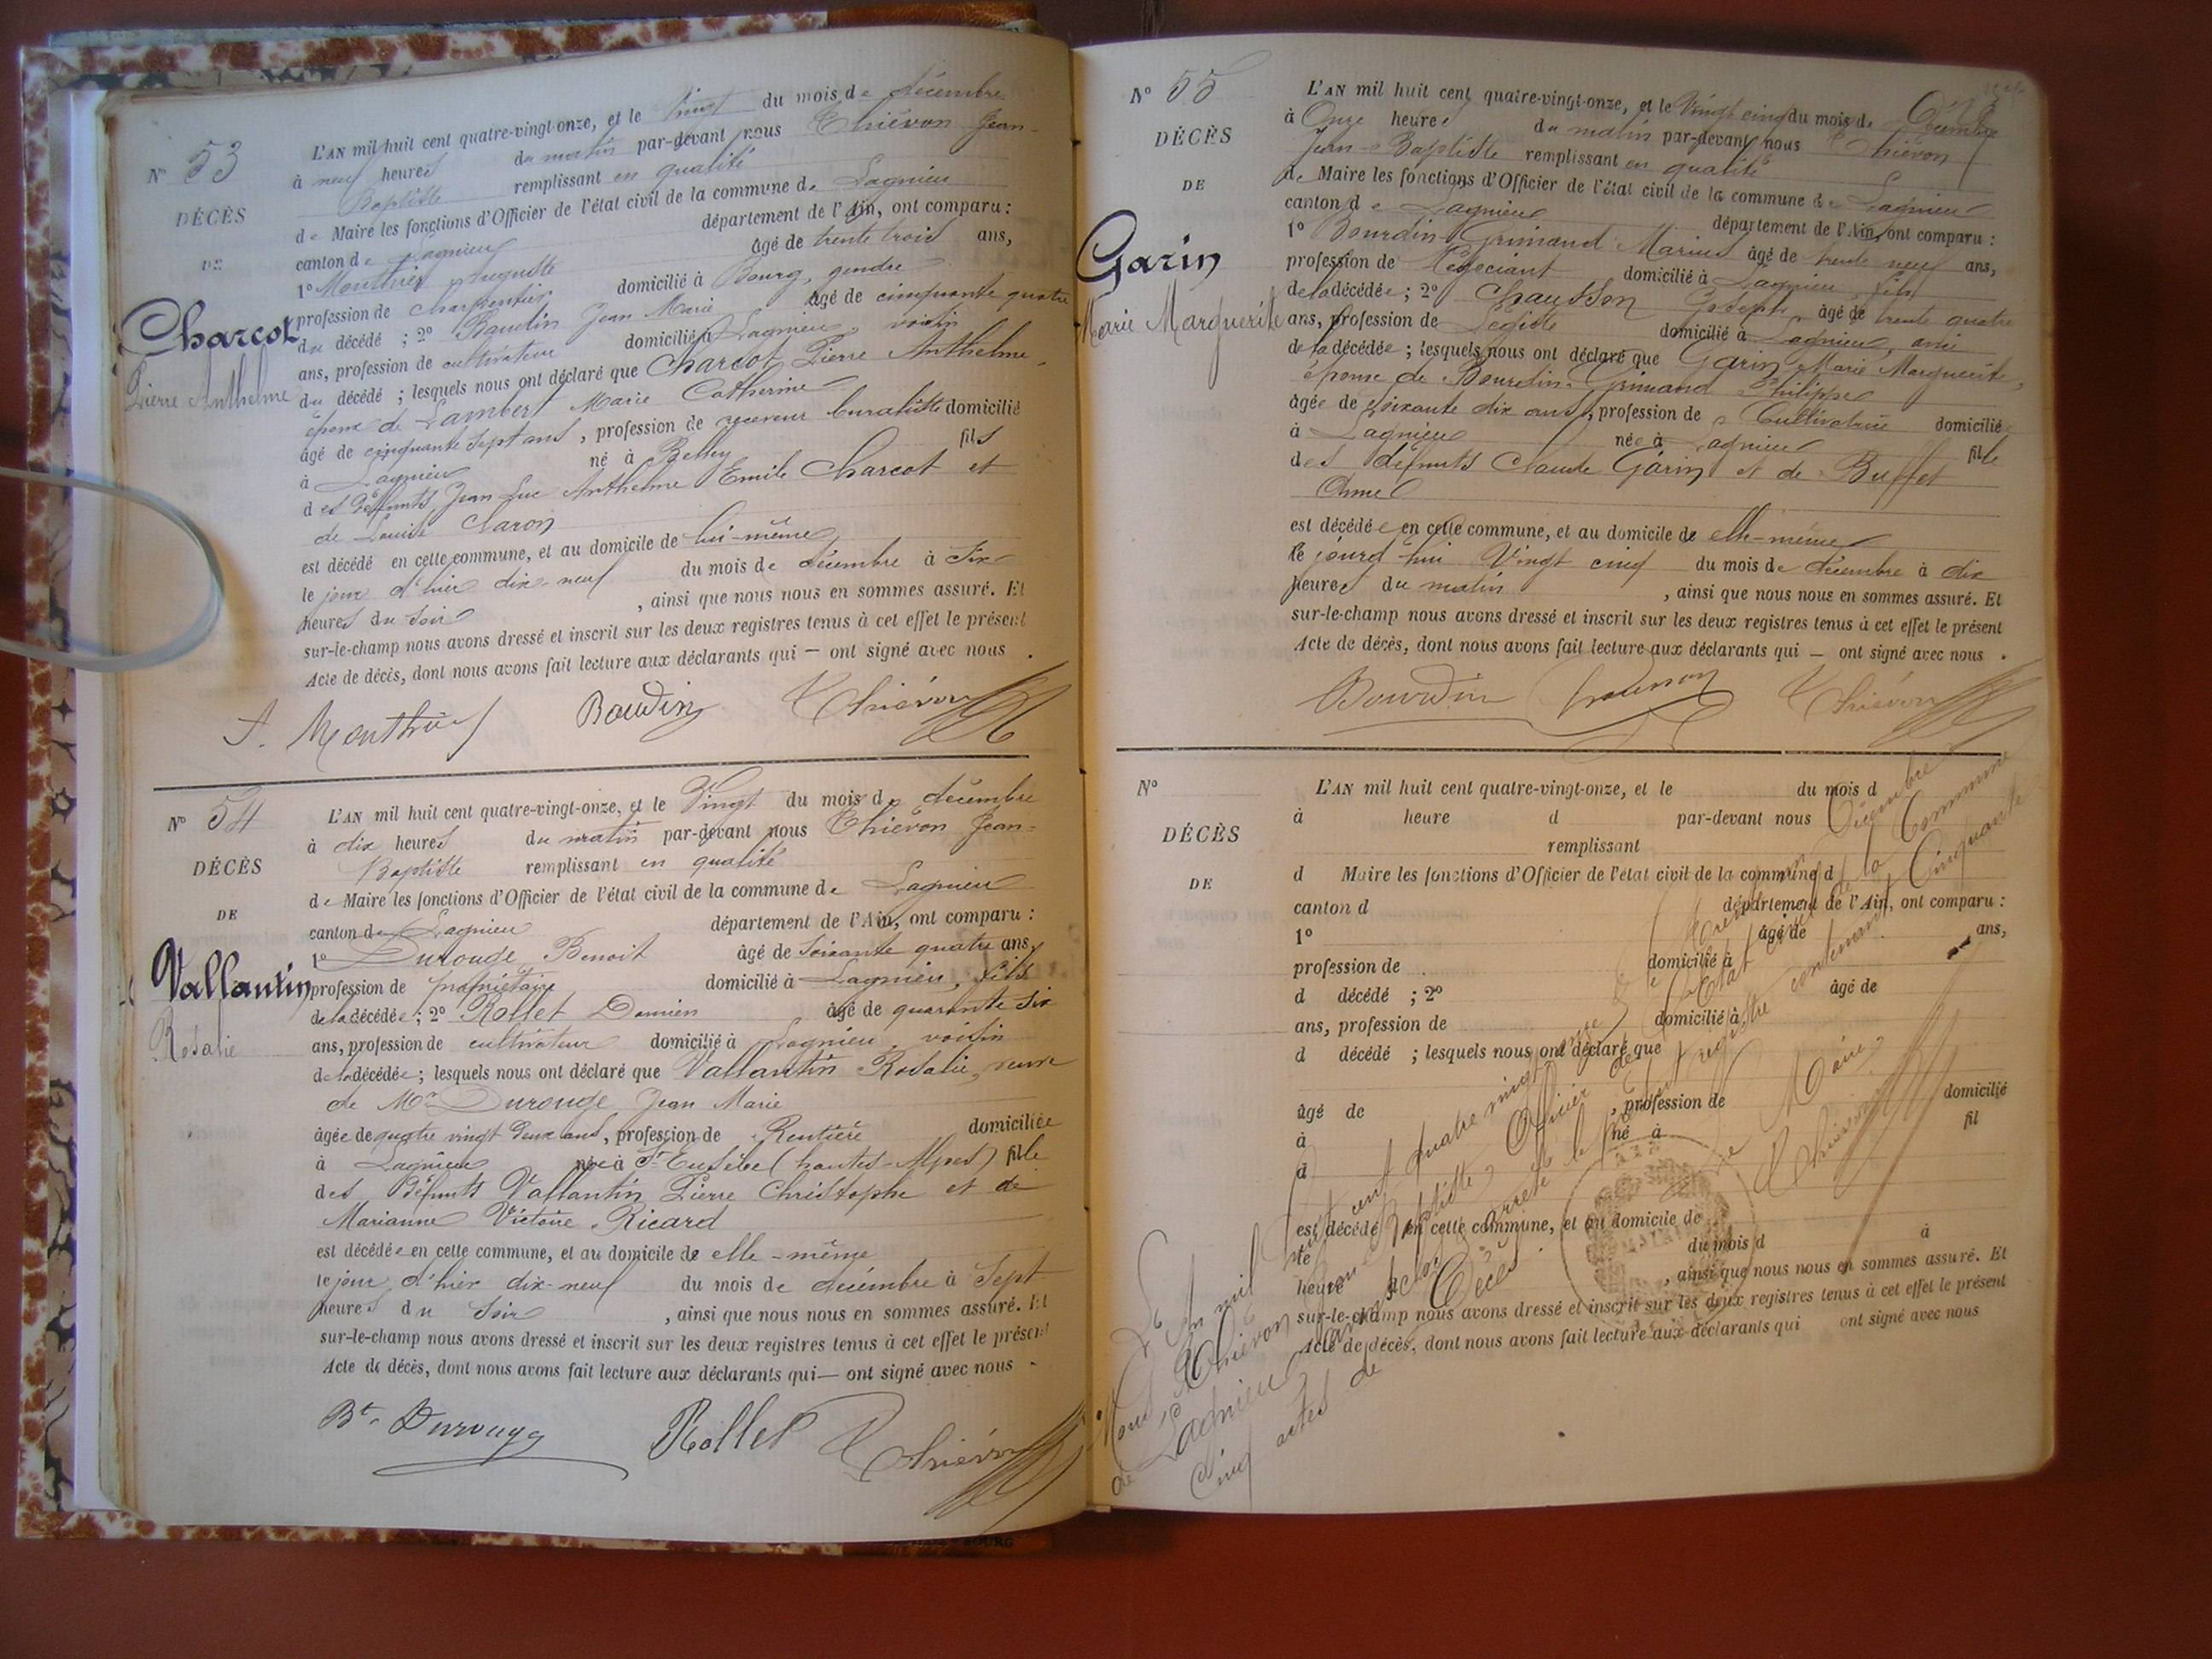 N° 53
DÉCÈS
DE
Charcot
Pierre Anthelme
L'AN mil huit cent quatre-vingt-onze, et le Vingt du mois de décembre
à neuf heures du matin par-devant nous Thiévon Jean-
Baptiste remplissant en qualité
de Maire les fonctions d'Officier de l'état civil de la commune de Lagnieu
canton de Lagnieu département de l'Ain, ont comparu :
1° Monthier Auguste âgé de trente trois ans,
profession de charpentier domicilié à Bourg, gendre
du décédé ; 2° Baudin Jean Marie âgé de cinquante quatre
ans, profession de cultivateur domicilié à Lagnieu, voisin
du décédé ; lesquels nous ont déclaré que Charcot Pierre Anthelme
époux de Lambert Marie Catherine
âgé de cinquante sept ans, profession de receveur buraliste domicilié
à Lagnieu né à Belley fils
des défunts Jean Luc Anthelme Emile Charcot et
de Louise Claron
est décédé en cette commune, et au domicile de lui-même
le jour d'hier dix-neuf du mois de décembre à Six
heures du Soir , ainsi que nous nous en sommes assuré. Et
sur-le-champ nous avons dressé et inscrit sur les deux registres tenus à cet effet le présent
Acte de décès, dont nous avons fait lecture aux déclarants qui — ont signé avec nous .
A. Monthier Baudin Thiévon
N° 54
DÉCÈS
DE
Vallantin
Rosalie
L'AN mil huit cent quatre-vingt-onze, et le Vingt du mois de décembre
à dix heures du matin par-devant nous Thiévon Jean-
Baptiste remplissant en qualité
de Maire les fonctions d'Officier de l'état civil de la commune de Lagnieu
canton de Lagnieu département de l'Ain, ont comparu :
1° Durouge Benoit âgé de soixante quatre ans,
profession de propriétaire domicilié à Lagnieu, fils
de la décédée ; 2° Rollet Damien âgé de quarante six
ans, profession de cultivateur domicilié à Lagnieu, voisin
de la décédée ; lesquels nous ont déclaré que Vallantin Rosalie, veuve
de Mr Durouge Jean Marie
âgée de quatre vingt deux ans, profession de Rentière domiciliée
à Lagnieu née à St Eusèbe (hautes-Alpes) fille
des Défunts Vallantin Pierre Christophe et de
Marianne Victoire Ricard
est décédée en cette commune, et au domicile de elle-même
le jour d'hier dix-neuf du mois de décembre à Sept
heures du Soir , ainsi que nous nous en sommes assuré. Et
sur-le-champ nous avons dressé et inscrit sur les deux registres tenus à cet effet le présent
Acte de décès, dont nous avons fait lecture aux déclarants qui — ont signé avec nous -
Bt Durouge Rollet Thiévon
N° 55
DÉCÈS
DE
Garin
Marie Marguerite
L'AN mil huit cent quatre-vingt-onze, et le Vingt cinq du mois de Décembre
à Onze heures du matin par-devant nous Thiévon
Jean-Baptiste remplissant en qualité
de Maire les fonctions d'Officier de l'état civil de la commune de Lagnieu
canton de Lagnieu département de l'Ain, ont comparu :
1° Bourdin-Grimaud Marius âgé de trente neuf ans,
profession de Négociant domicilié à Lagnieu, fils
de la décédée ; 2° Chausson Joseph âgé de trente quatre
ans, profession de Légiste domicilié à Lagnieu, ami
de la décédée ; lesquels nous ont déclaré que Garin Marie Marguerite,
épouse de Bourdin-Grimaud Philippe
âgée de soixante dix ans, profession de Cultivatrice domiciliée
à Lagnieu née à Lagnieu fille
des défunts Claude Garin et de Buffet
Anne
est décédée en cette commune, et au domicile de elle-même
ce jourd'hui Vingt cinq du mois de décembre à dix
heures du matin , ainsi que nous nous en sommes assuré. Et
sur-le-champ nous avons dressé et inscrit sur les deux registres tenus à cet effet le présent
Acte de décès, dont nous avons fait lecture aux déclarants qui — ont signé avec nous .
Bourdin Chausson Thiévon
N°
DÉCÈS
DE
L'AN mil huit cent quatre-vingt-onze, et le du mois d
à heure d par-devant nous
remplissant
d Maire les fonctions d'Officier de l'état civil de la commune d
canton d département de l'Ain, ont comparu :
1° âgé de ans,
profession de domicilié à
d décédé ; 2° âgé de
ans, profession de domicilié à
d décédé ; lesquels nous ont déclaré que
âgé de , profession de domicilié
à né à fil
d
est décédé en cette commune, et au domicile de
le du mois d à
heure , ainsi que nous nous en sommes assuré. Et
sur-le-champ nous avons dressé et inscrit sur les deux registres tenus à cet effet le présent
Acte de décès, dont nous avons fait lecture aux déclarants qui ont signé avec nous
L'An mil huit cent quatre vingt onze le trente un Décembre
Nous Thiévon Jean Baptiste, Officier de l'Etat civil de la Commune
de Lagnieu avons clos arrêté le présent registre contenant Cinquante
cinq actes de Décès.
Le Maire,
Thiévon
MAIRIE
AIN